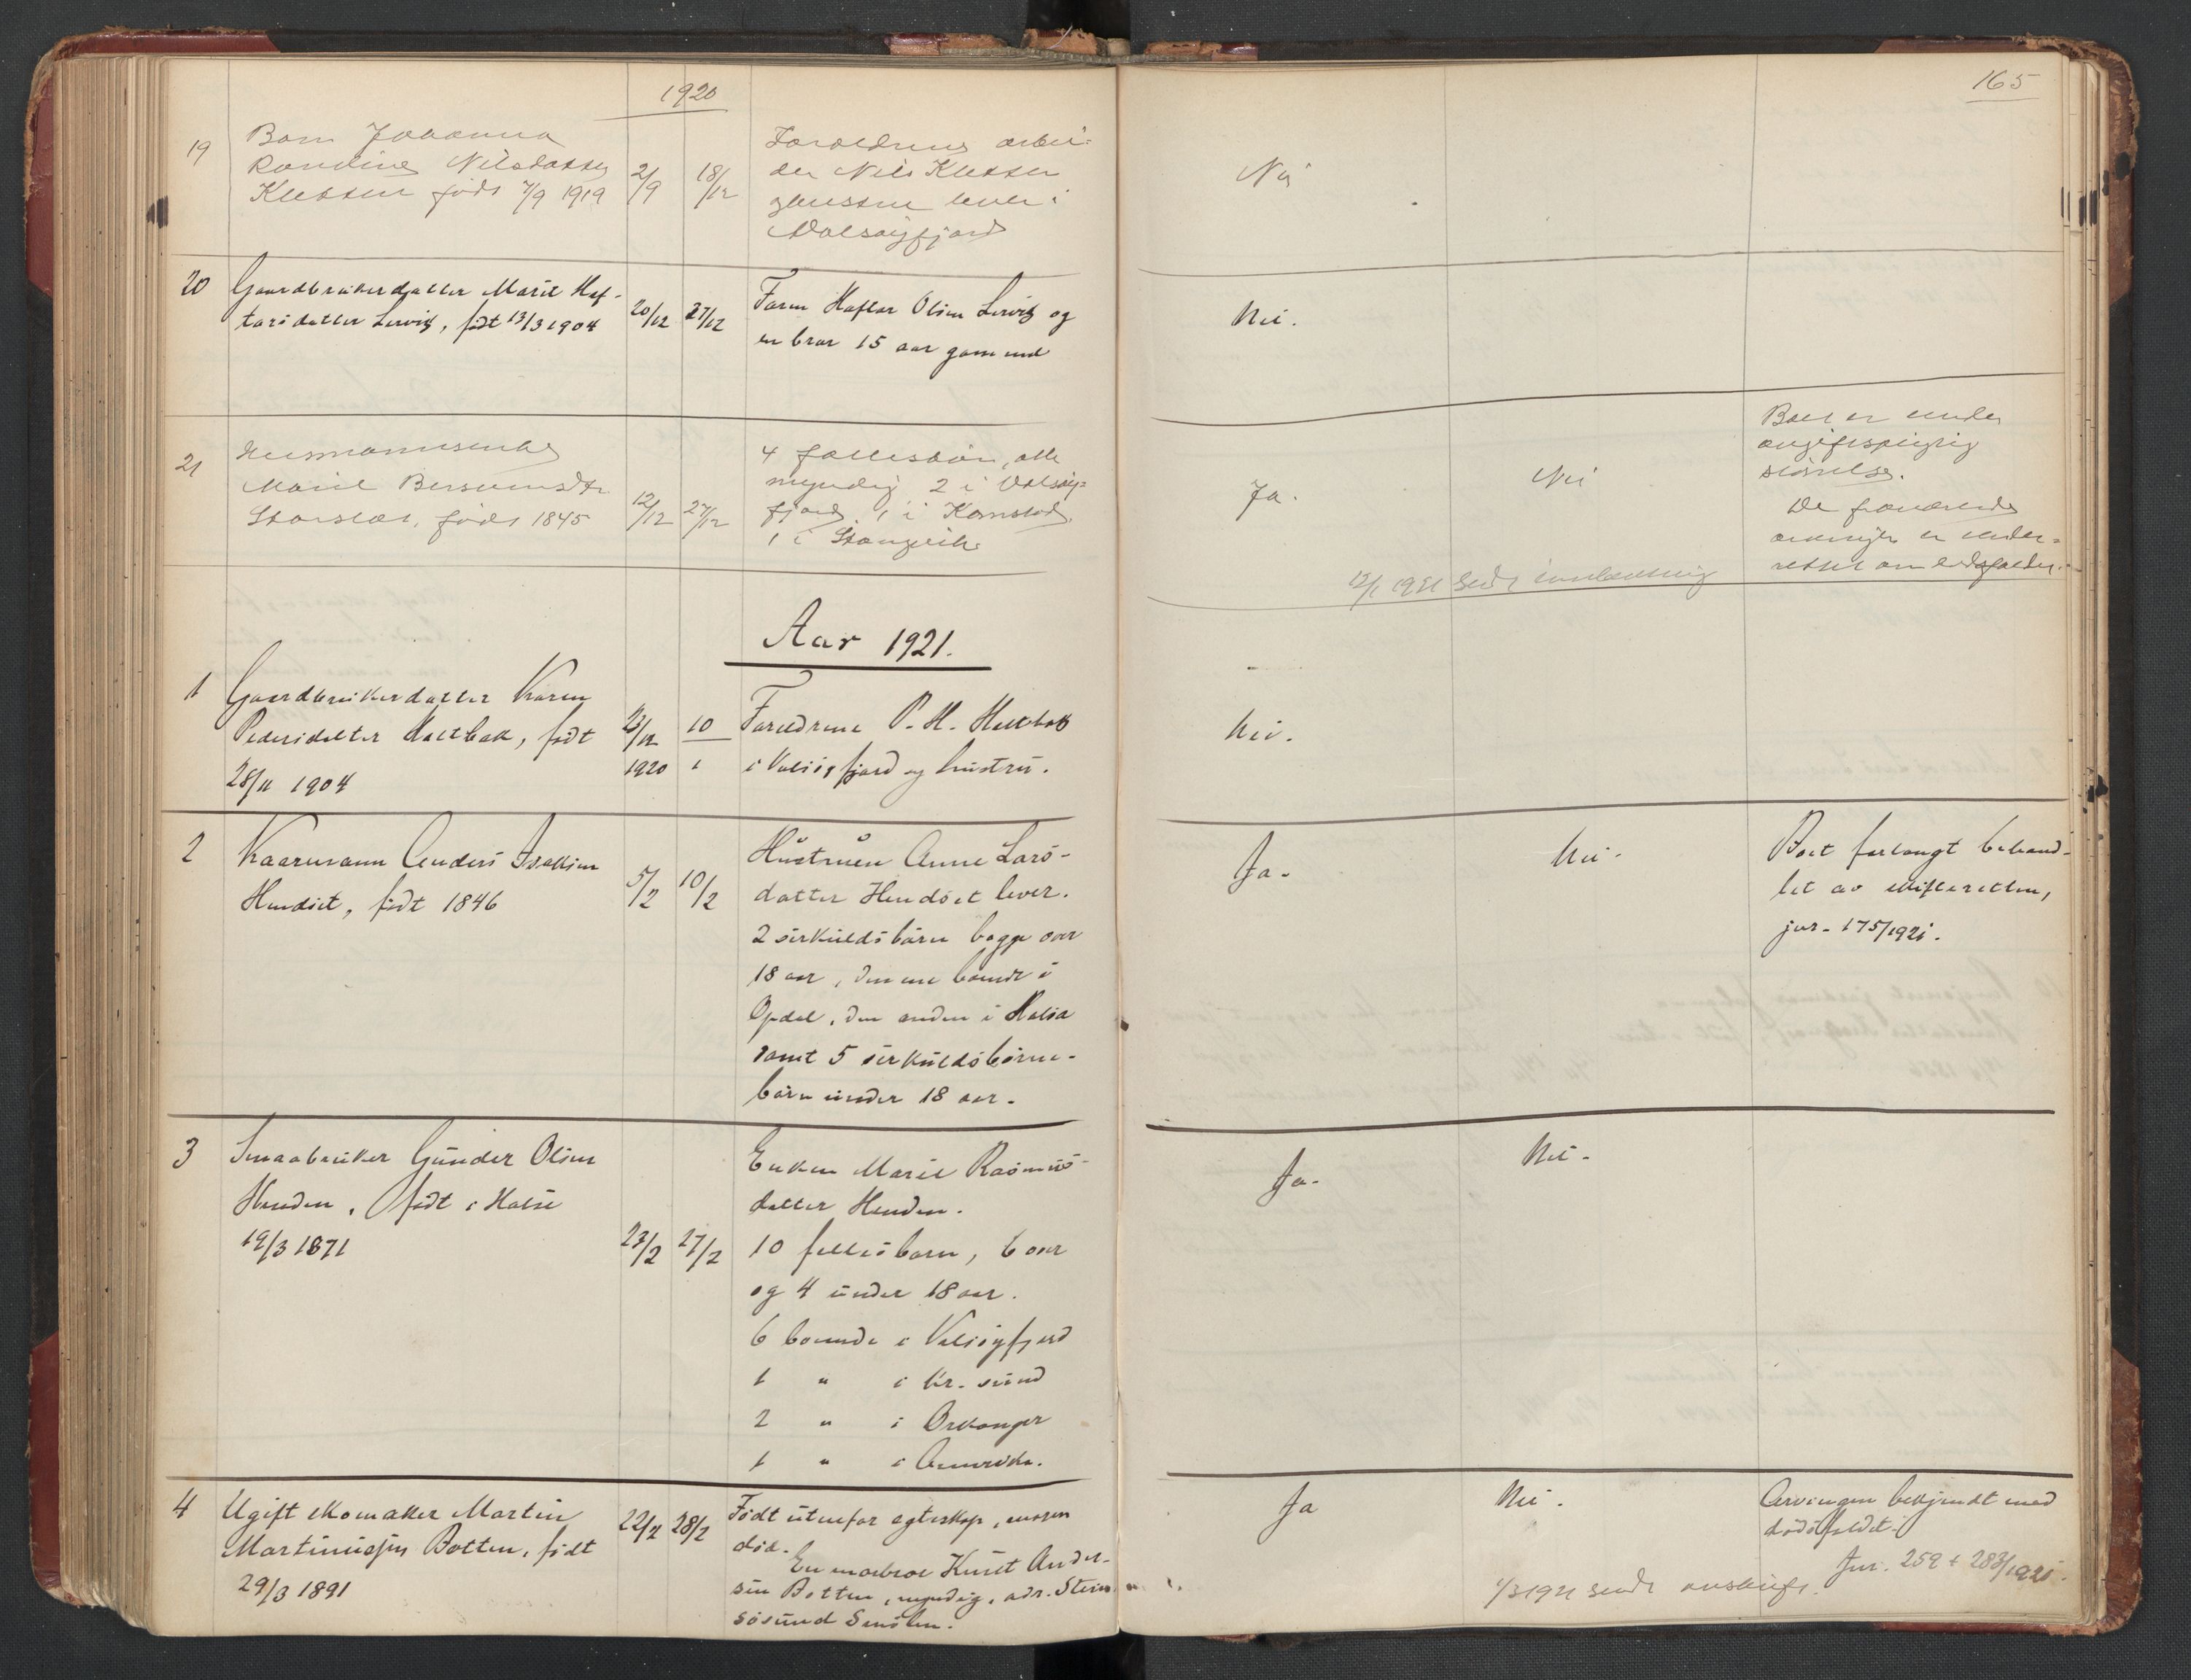 1920
165
19
Barn Johanna
Nilsdatter
Kletten født 7/9 1919
2/9
18/12
Forældrene arbei-
der Nils Kletten
hustru lever i
Valsøyfjord
Nei
20
Gaardbrukerdatter Marit Haf-
torsdatter Lervig, født 13/3 1904
20/12
27/12
Faren Haftor Olsen Lervig og
en bror 15 aar gammel
Nei.
21
Husmannsenke
Marit Berentsdtr
født 1845
12/12
27/12
4 fællesbørn, alle
myndig 2 i Valsøy-
fjord, 1 i Kornstad,
1 i Stangvik
Ja.
Nei
Boet er under
avgiftspligtig
størrelse.
De fraværende
arvinger er under-
rettet om dødsfaldet.
12/1 1921 sendt innberetning
Aar 1921.
1
Gaardbrukerdatter Karen
Pedersdatter Haltbak, født
28/11 1904
23/12
1920
10
1
Forældrene P. H. Haltbak
i Valsøyfjord og hustru.
Nei.
2
Kaarmann Anders Joakim
Hendset, født 1846
5/2
10/2
Hustruen Anne Lars-
datter Hendset lever.
2 særkuldsbørn begge over
18 aar, den ene boende i
Opdal, den anden i Halsa
samt 5 særkuldsbørne-
børn under 18 aar.
Ja.
Nei.
Boet forlangt behand-
let av skifteretten,
jur. 175/1921.
3
Smaabruker Gunder Olsen
Henden, født i Halse
19/3 1871
23/2
27/2
Enken Marit Rasmus-
datter Henden.
10 fellesbarn, 6 over
og 4 under 18 aar.
6 boende i Valsøyfjord
1 " i Kr.sund
2 " i Orkanger
1 " i Amerika.
Ja.
Nei.
4
Ugift skomaker Martin
Martinussen Botten, født
29/3 1891
22/2
28/2
Født utenfor egteskap, moren
død.
En morbror Knut Ander-
sen Botten, myndig, adr. Stein-
søsund Smølen.
Ja
Nei.
Arvingen bekjendt med
dødsfaldet.
Jur. 259 + 283/1921.
1/3 1921 sendt avskrift.